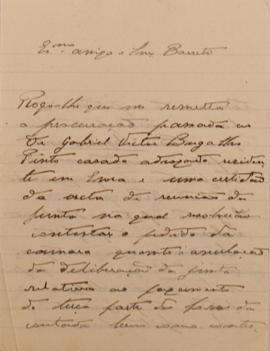 Ex.mo amigo e Snr Barreto
Rogo lhe que me remetta
a procuração passada ao
Dr Gabriel Victor Bugalho
Pinto casado advogado residen
te em Evora e uma certidão
da acta da reunião da
junta na qual resolveu
contestar o pedido da
camara quanto a
da deliberação da junta
relativa ao pagamento
da terça parte do